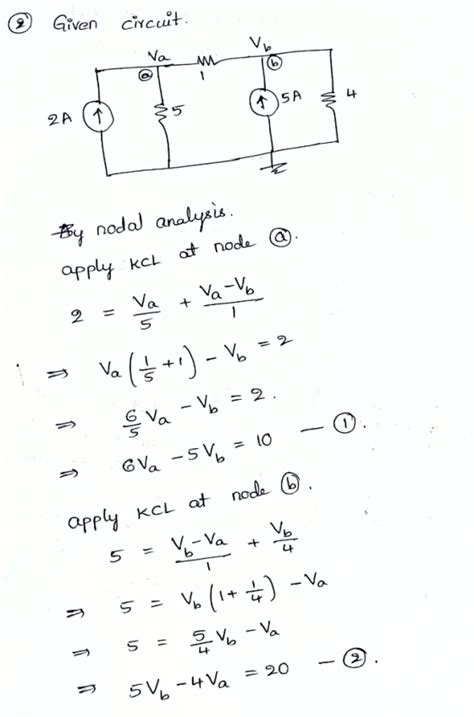 ② Given circuit.
Va Vb
ⓐ 1 ⓑ
2A 5 5A 4
By nodal analysis.
apply KCL at node ⓐ.
2 = Va/5 + (Va-Vb)/1
⇒ Va(1/5 + 1) - Vb = 2
⇒ 6/5 Va - Vb = 2.
⇒ 6Va - 5Vb = 10 — ①.
apply KCL at node ⓑ.
5 = (Vb-Va)/1 + Vb/4
⇒ 5 = Vb(1 + 1/4) - Va
⇒ 5 = 5/4 Vb - Va
⇒ 5Vb - 4Va = 20 — ②.